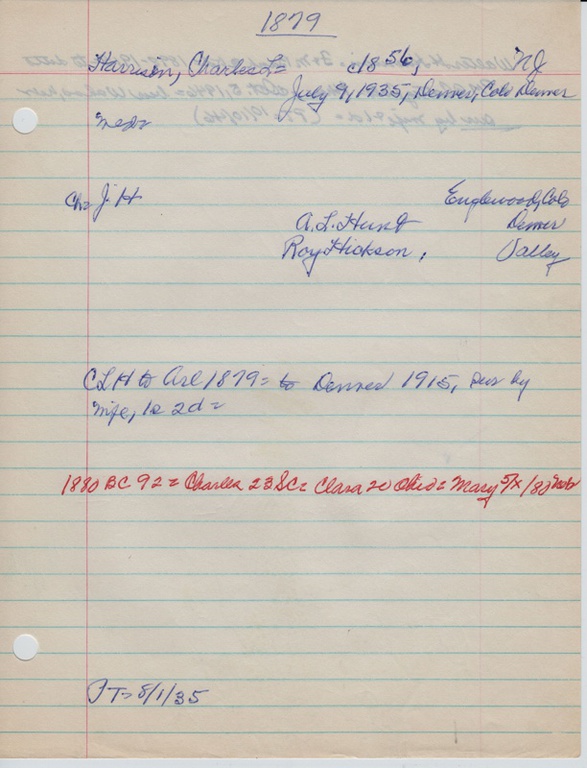 1879
Harrison, Charles L= c1856, NJ
July 9, 1935, Denver, Colo Denver
Ch= J. H Englewood, Colo
A. L. Hunt Denver
Roy Hickson, Valley
CLH to Col 1879= to Denver 1915, sur by
wife, 1s 2d=
1880 BC 92= Charles 23 SC= Clara 20 Ohio= Mary 5/x/80 Neb
PT= 8/1/35